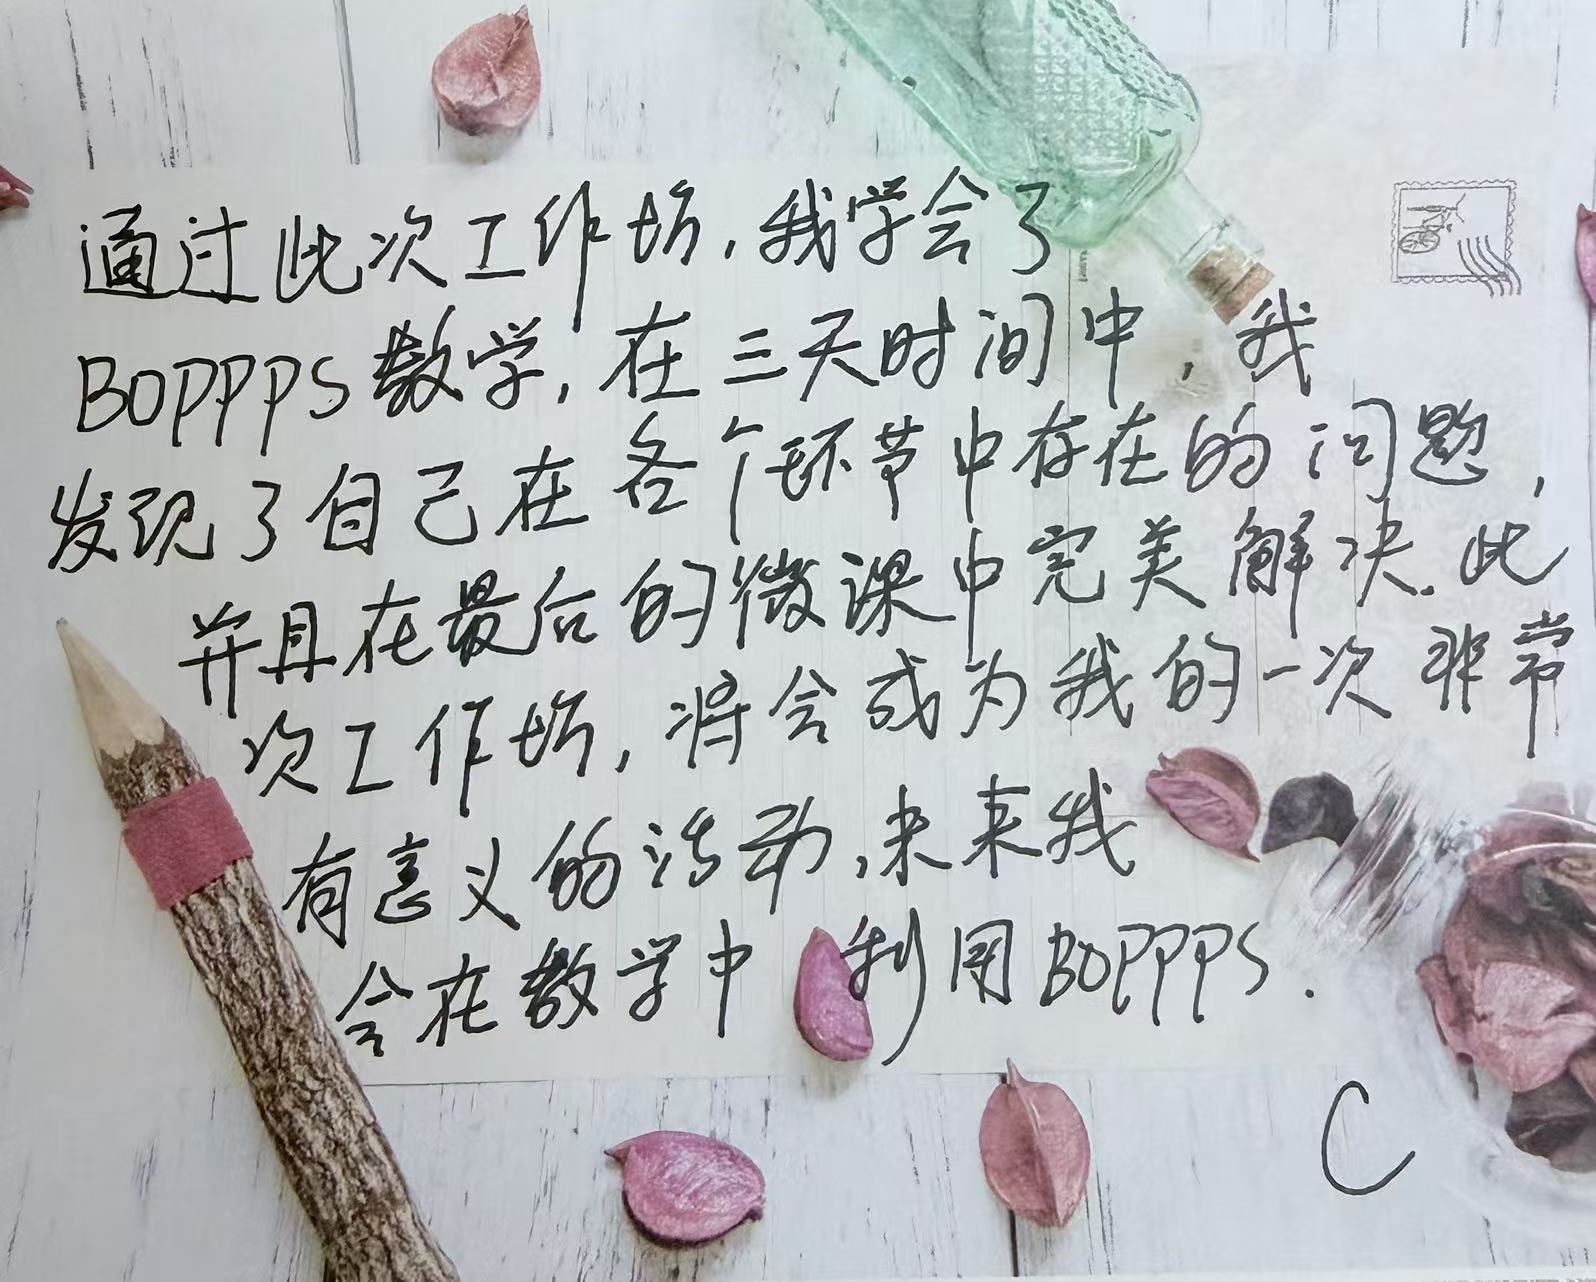 通过此次工作坊,我学会了
BOPPPS教学,在三天时间中,我
发现了自己在各个环节中存在的问题,
并且在最后的微课中完美解决.此
次工作坊,将会成为我的一次非常
有意义的活动,未来我
会在教学中利用BOPPPS.
C